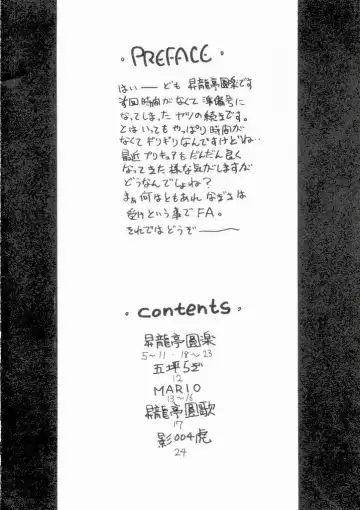 ・PREFACE・
はいーーども 昇龍亭圓楽です
前回時間がなくて準備号に
なってしまったヤツの続きです。
とはいってもやっぱり時間が
なくてギリギリなんですけどね…
最近プリキュアもだんだん良く
なってきた様な気がしますが
どうなんでしょね？
まぁ何はともあれ なぎさは
受けという事でFA。
それではどうぞーーー
・contents・
昇龍亭圓楽
5〜11・18〜23
五坪らぎ
12
MARIO
13〜16
昇龍亭圓歌
17
影004虎
24